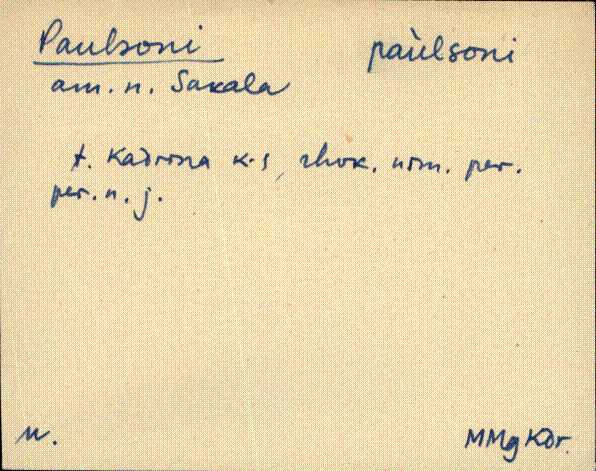 Paulsoni paùlsoni
am. n. Sakala
t. Kadrina k-s, nim. per.
per. n. j.
n.
MMg Kdr.